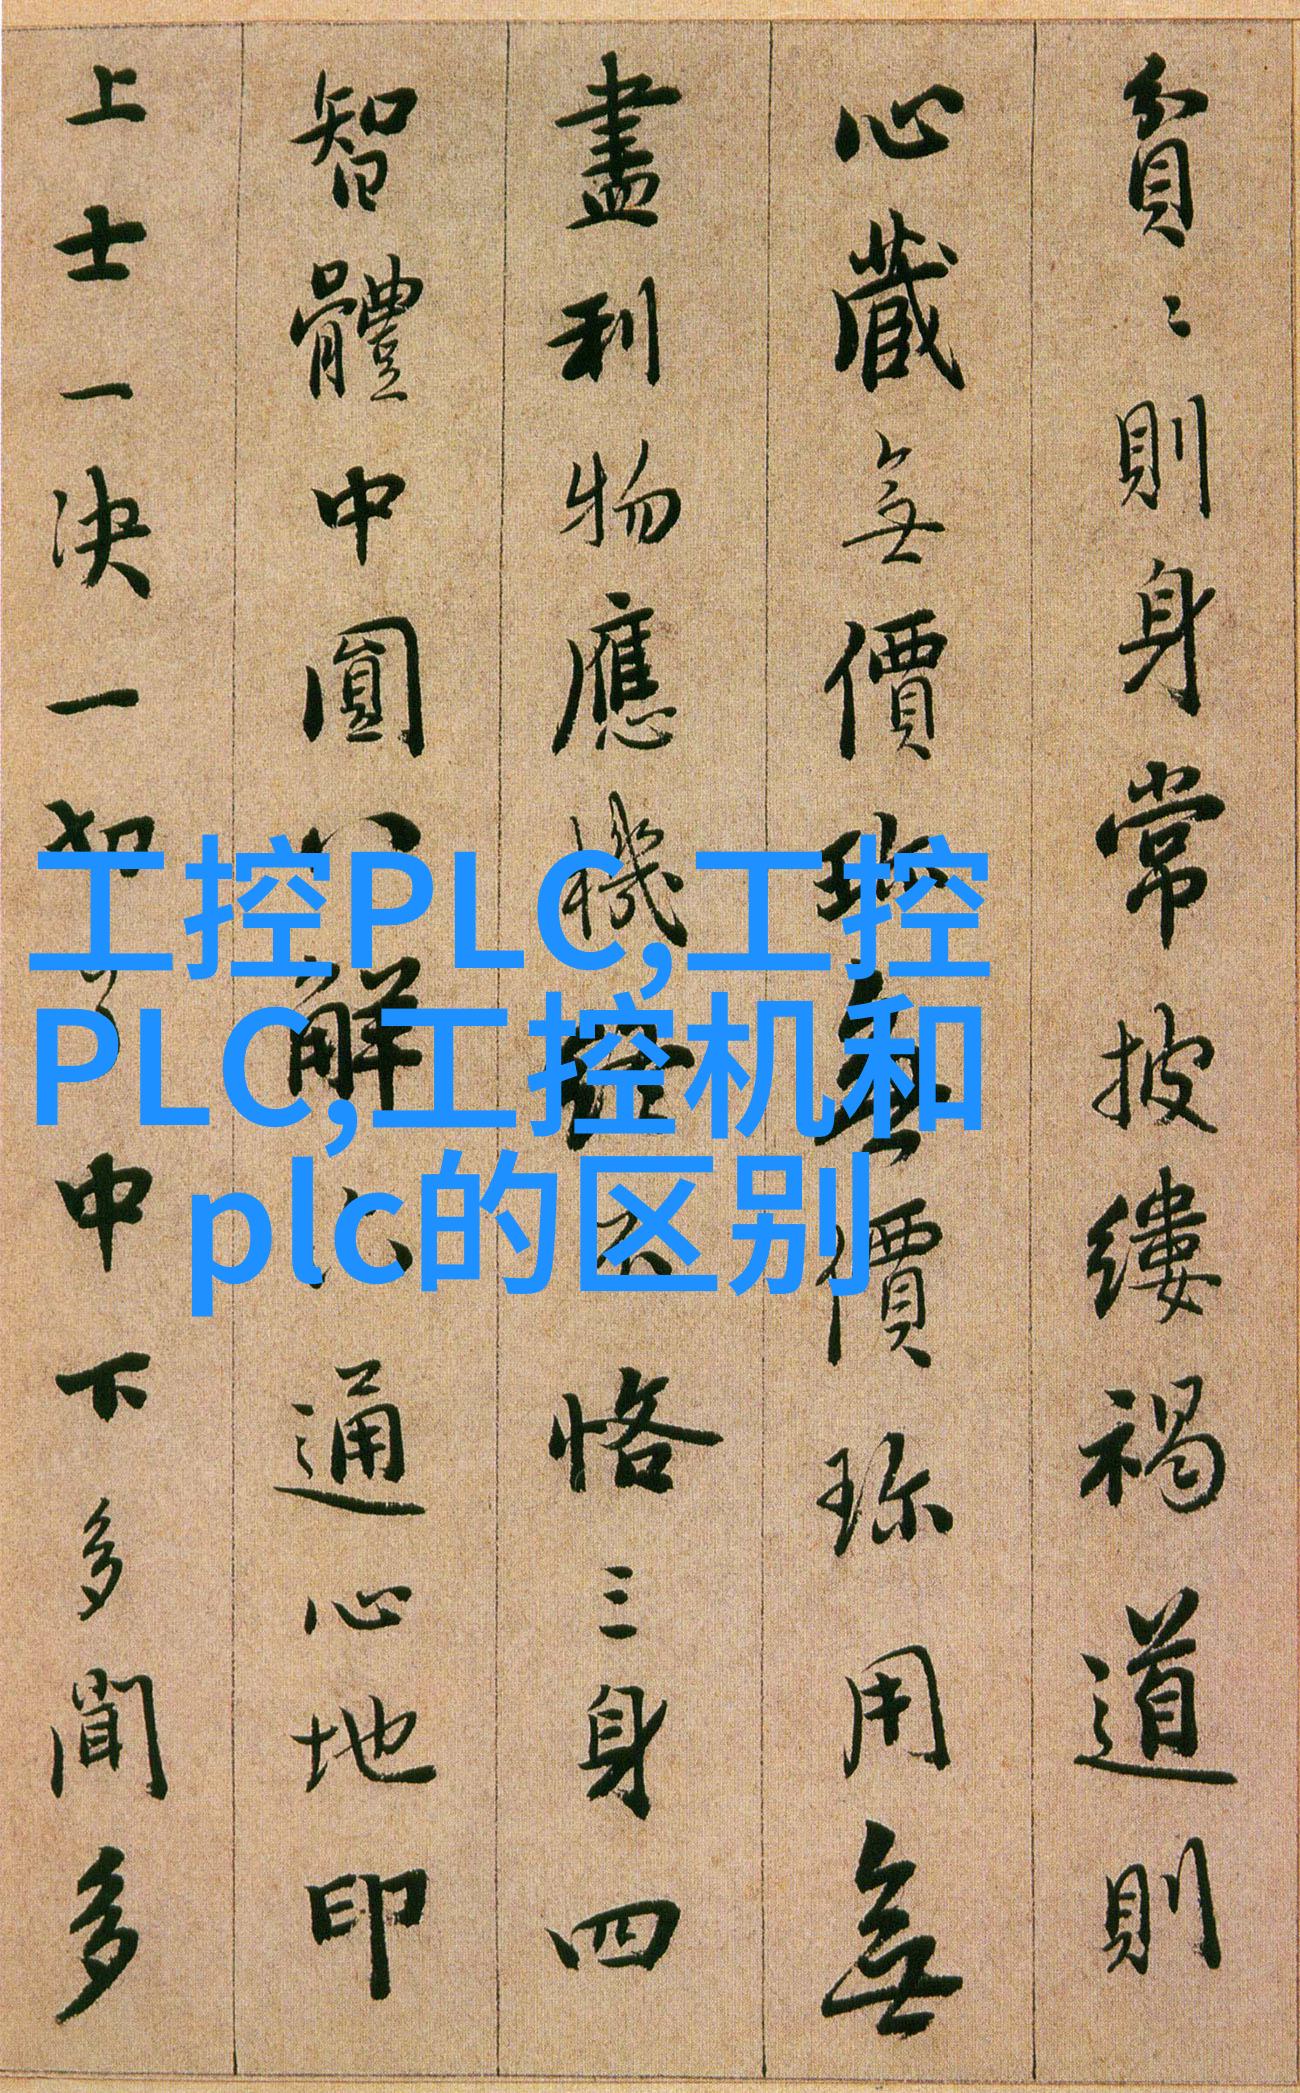 貧〻則身常披縷褐道則
心藏無價珎無價珎用無
盡利物應機不恪三身四
智體中圓八解六通心地印
上士一決一切了中下多聞多
工控PLC,工控
PLC,工控机和
plc的区别